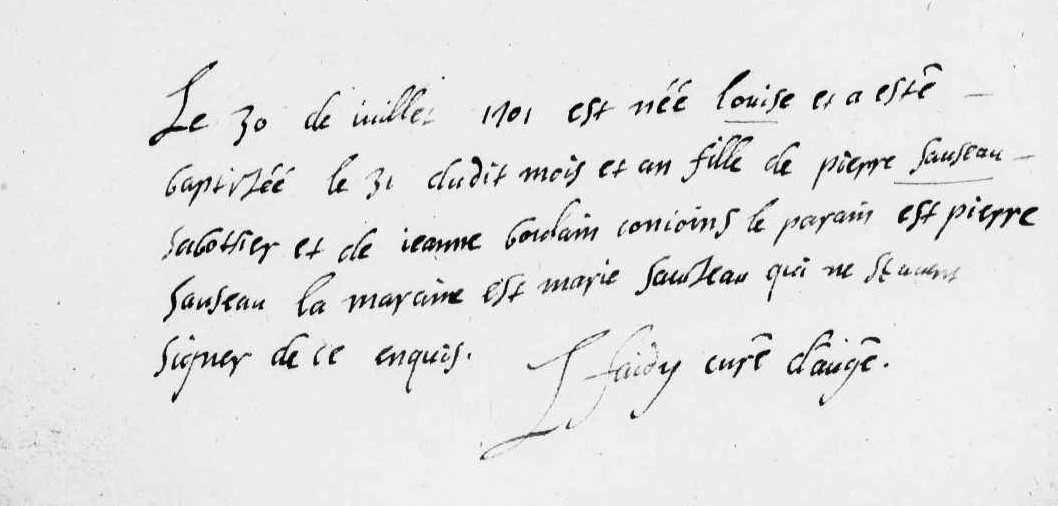 Le 30 de iuillet 1701 est néé louise et a esté
baptizéé le 31 dudit mois et an fille de pierre sauseau
sabottier et de ieanne boudain conioins le parain est pierre
sauseau la maraine est marie sauzeau qui ne scavent
signer de ce enquis. L faidy curé d'augé.